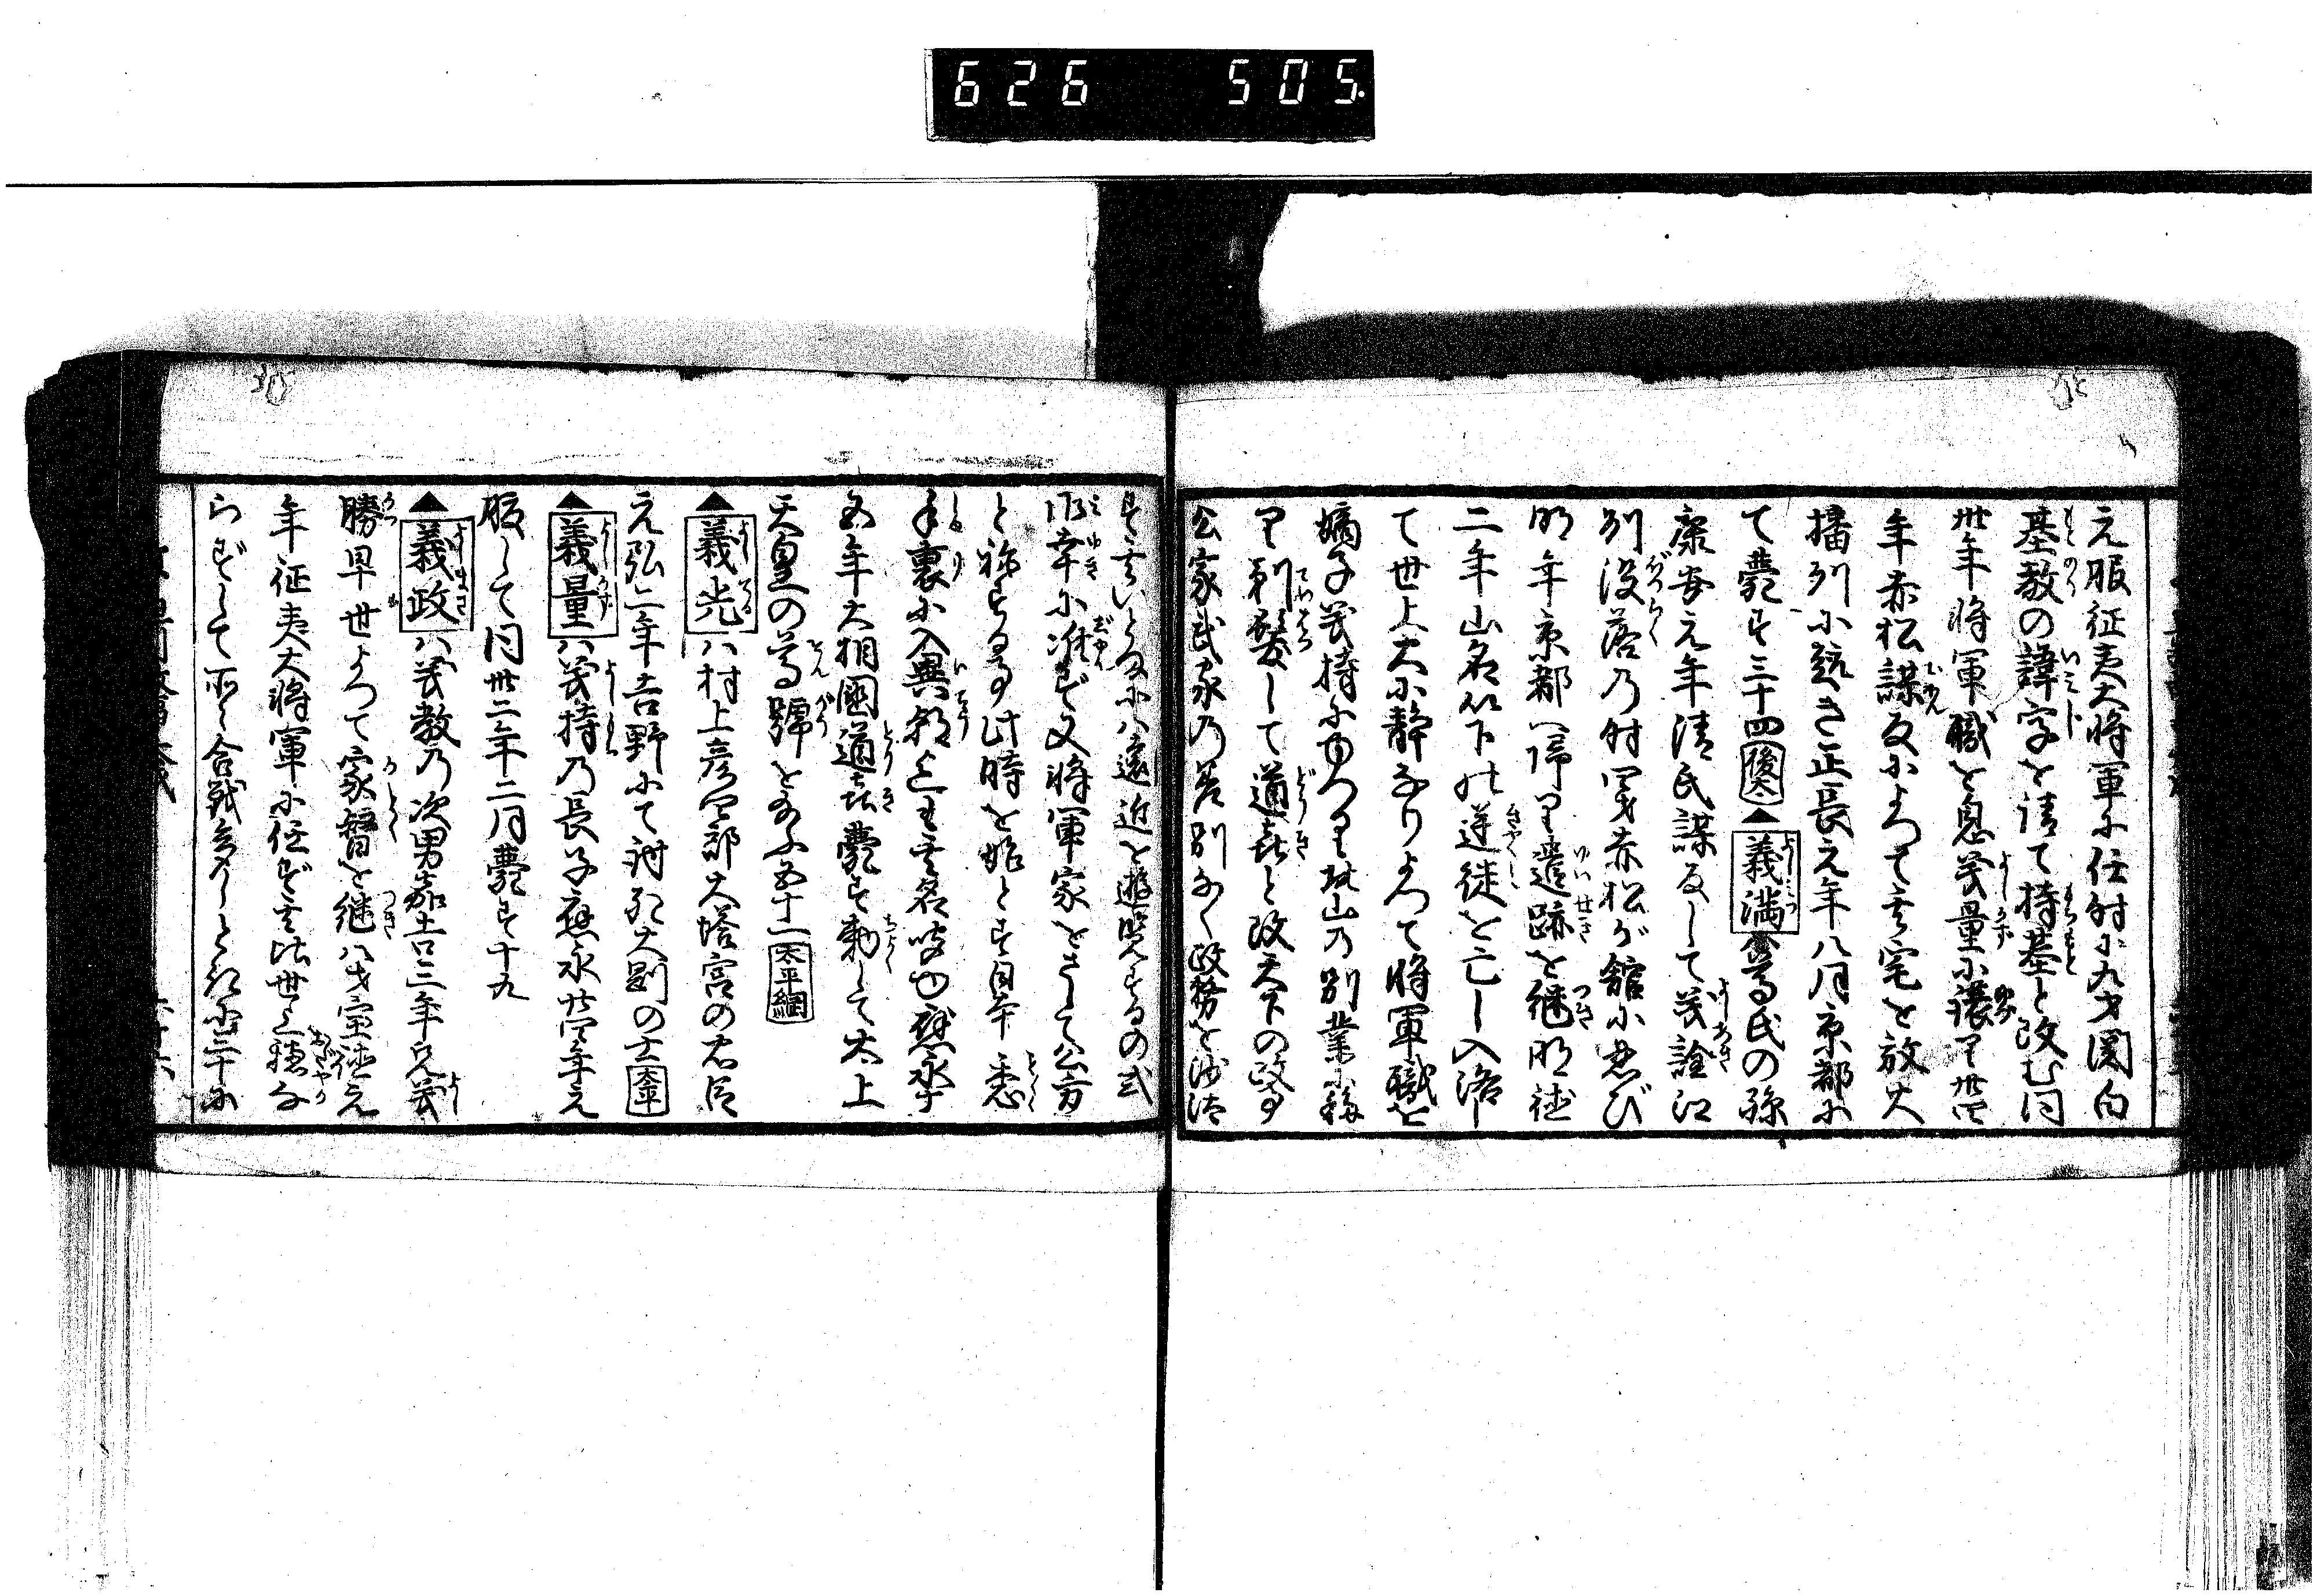 626 505.
元服征夷大将軍に任時に九才関白
基教の諱字を請て持基と改む同
卅年将軍職を息義量に譲り卅四
年赤松謀反によつて其宅を放火
播州に赴き正長元年八月京都に
て薨ず三十四 後太 ▲義満 尊氏の孫
康安元年清氏謀反して義詮江
州没落の時四才赤松が館に忍び
明年京都へ帰り遺跡を継明徳
二年山名以下の逆徒を亡し入洛し
て世上大に静なりよつて将軍職を
嫡子義持にゆづり北山の別業に移
り剃髪して道義と改天下の政事
公家武家の差別なく政務を沙汰
は遠近を遊覧するの式
御幸に准ず又将軍家をさして公方
と称する事此時を始とす日本悉
手裏に入
五年大相国道義薨ず勅して太上
天皇の尊號を給ふ五十一 太平綱
▲義光 ハ村上彦四郎大塔宮の忠臣
元弘二年吉野にて討死大剛の士 太平
▲義量 ハ義持の長子応永廿四年元
服して同卅二年二月薨ず十九
▲義政 ハ義教の次男嘉吉三年兄義
勝早世よつて家督を継八才宝徳元
年征夷大将軍に任ず其比世上穏な
らずして所々合戦多し